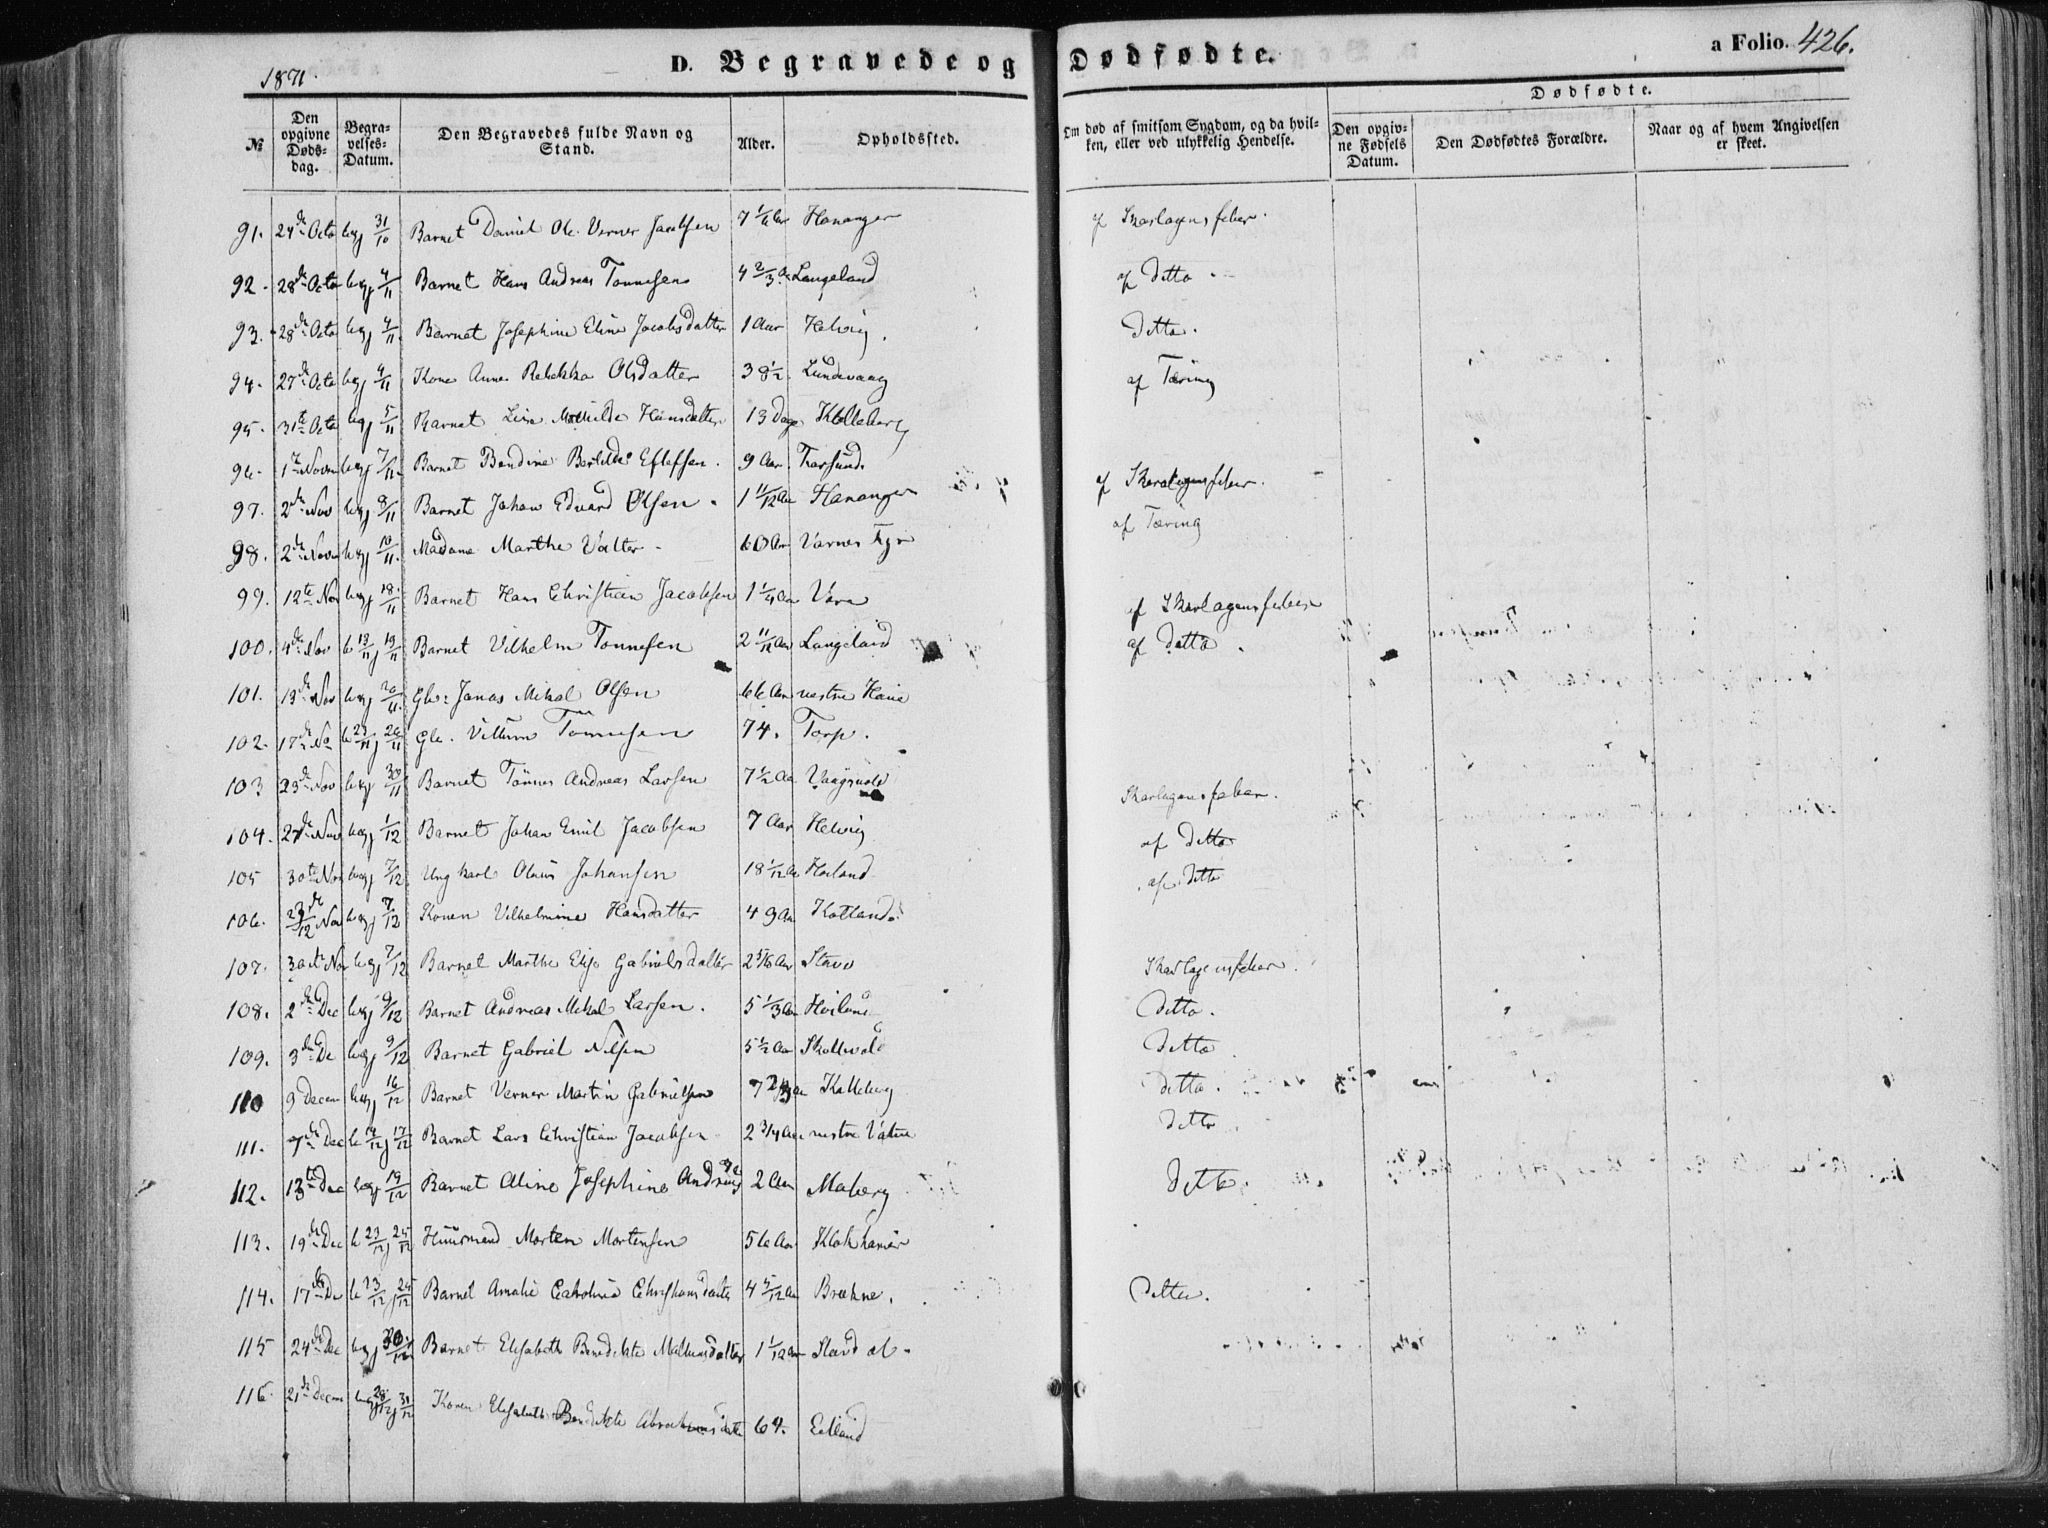 1871.
D. Begravede og Dødfødte.
a Folio. 426.
Dødfødte.
№ | Den opgivne Døds-dag. | Begra-velses-Datum. | Den Begravedes fulde Navn og Stand. | Alder. | Opholdssted. | Om død af smitsom Sygdom, og da hvil-ken, eller ved ulykkelig Hendelse. | Den opgiv-ne Fødsels Datum. | Den Dødfødtes Forældre. | Naar og af hvem Angivelsen er skeet.
91. 24de Octo begj 31/10 Barnet Daniel Ole Verner Jacobsen 7 1/6 Aar Hananger af Skarlagensfeber.
92. 28de Octo begj 4/11 Barnet Hans Andreas Tønnesen 4 2/3 Langeland af Ditto
93. 28de Octo begj 4/11 Barnet Josephine Eline Jacobsdatter 1 Aar Helvig. Ditto.
94. 27de Octo begj 4/11 Kone Anne Rebekka Olsdatter 38 1/2 Lundevaag af Tæring
95. 31te Octo begj 5/11 Barnet Lise Mathilde Hansdatter 13 Dage Kolleberg
96. 1te Novm begj 7/11 Barnet Bendine Eflefsen. 9 Aar. Farsund. af Skarlagensfeber.
97. 2de Nov begj 8/11 Barnet Johan Edvard Olsen 1 11/12 Aar Hananger af Tæring
98. 2de Novm begj 10/11. Madame Marthe Valter 60 Aar Varnes Fyr
99. 12te Nov begj 18/11 Barnet Hans Christian Jacobsen 1 1/4 Aar Vere af Skarlagensfeber
100. 4de Nov b 13/11 j 19/11 Barnet Vilhelm Tønnesen 2 11/12 Aar Langeland af Ditto.
101. 13de Nov begj 20/11. Gle: Jonas Mikal Olsen 66 Aar vestre Haue
102. 17de No b 23/11 j 26/11 Gle. Villum Tönnesen 74. Torp.
103 23de Nov begj 30/11 Barnet Tönnes Andreas Larsen 7 1/2 Aa Vaagsvold Skarlagensfeber.
104. 27de Nov begj 1/12 Barnet Johan Emil Jacobsen 7 Aar Helvig af Ditto
105 30te Nov begj 7/12 Ungkarl Olaus Johansen 18 1/12 Aa Hoiland af Ditto
106. Nov begj 7/12 Konen Vilhelmine Hansdatter 49 Aar Kotland
107. 30te Nov begj 7/12 Barnet Marthe Elise Gabrielsdatter Aar Stave Skarlagensfeber.
108. 2de Dec begj 9/12 Barnet Andreas Mikal Larsen. 5 1/3 Aar Hoiland Ditto.
109. 3de De begj 9/12 Barnet Gabriel Nilsen 5 1/2 Aar Skollevold Ditto
110 9 Decem begj 16/12 Barnet Verner Martin Gabrielsen 7 2/3 Aar Kolleberg Ditto.
111. 7de Dec b 14/12 j 17/12 Barnet Lars Christian Jacobsen 2 3/4 Aar vestre Vatne Ditto
112. 13te Dec begj 19/12 Barnet Aline Josephine 2 Aar Maberg Ditto.
113. 19de Dec b 23/12 j 25/12 Huusmand Morten Mortensen 56 Aar Klokhamer
114. 17de De b 23/12 j 24/12 Barnet Amalie Cathrine Christiansdatter 4 5/12 Aa Brækne. Ditto.
115 24de Dec begj 30/12 Barnet Elisabeth Bendikte 1 1/12 Aar
116. 21de Decem beg 28/12 j 31/12 Konen Elisabeth Bendikte Abrahamsdatter 64. Eitland